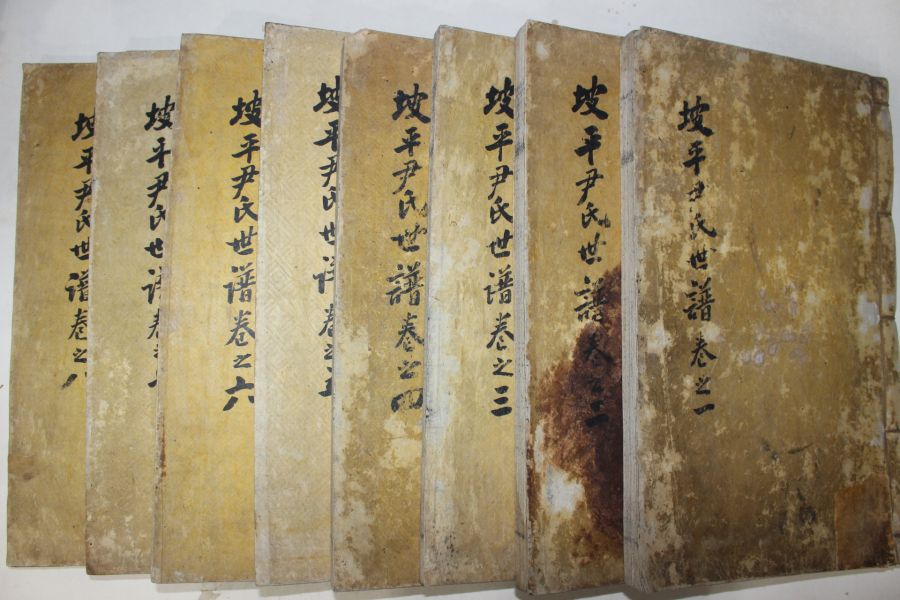 坡平尹氏世譜 卷之一
坡平尹氏世譜 卷之二
坡平尹氏世譜 卷之三
坡平尹氏世譜 卷之四
坡平尹氏世譜 卷之五
坡平尹氏世譜 卷之六
坡平尹氏世譜 卷之
坡平尹氏世譜 卷之八